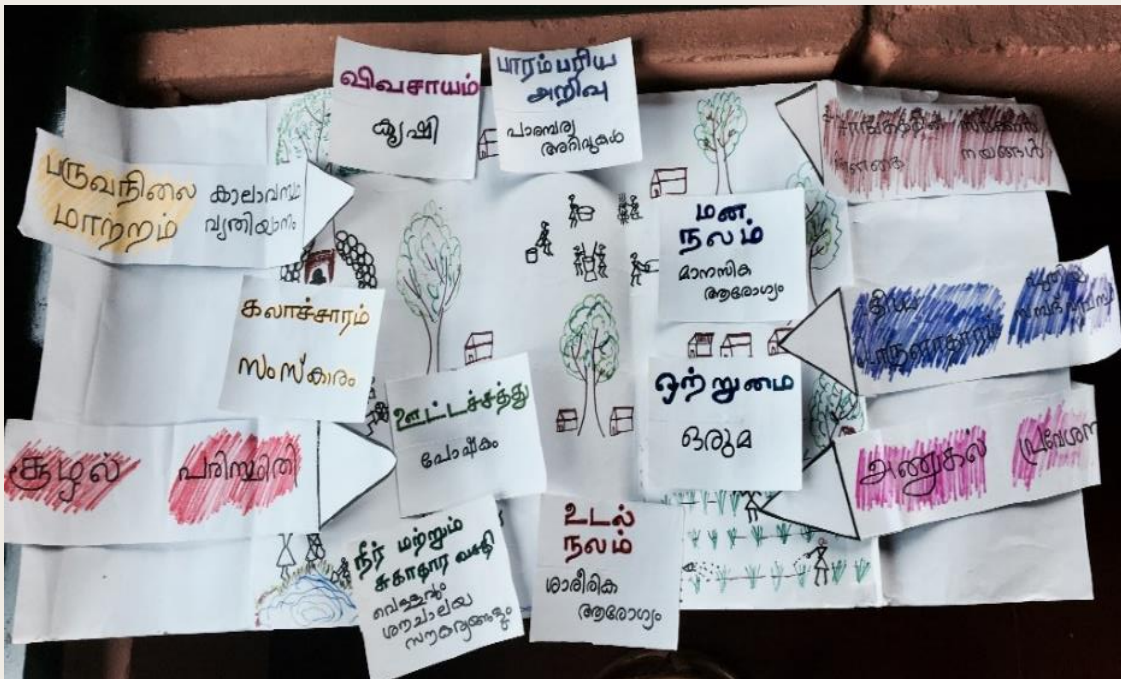 விவசாயம்
കൃഷി
பாரம்பரிய
அறிவு
പാരമ്പര്യ
അറിവുകൾ
பருவநிலை
மாற்றம்
കാലാവസ്ഥ
വ്യതിയാനം
നയങ്ങൾ
மன
நலம்
മാനസിക
ആരോഗ്യം
கலாச்சாரம்
സംസ്കാരം
ஊட்டச்சத்து
പോഷകം
ஒற்றுமை
ഒരുമ
சூழல்
പരിസ്ഥിതി
அணுகல்
നீர் மற்றும்
சுகாதார வசதி
വെള്ളവും
ശൗചാലയ
സൗകര്യങ്ങളും
உடல்
நலம்
ശാരീരിക
ആരോഗ്യം